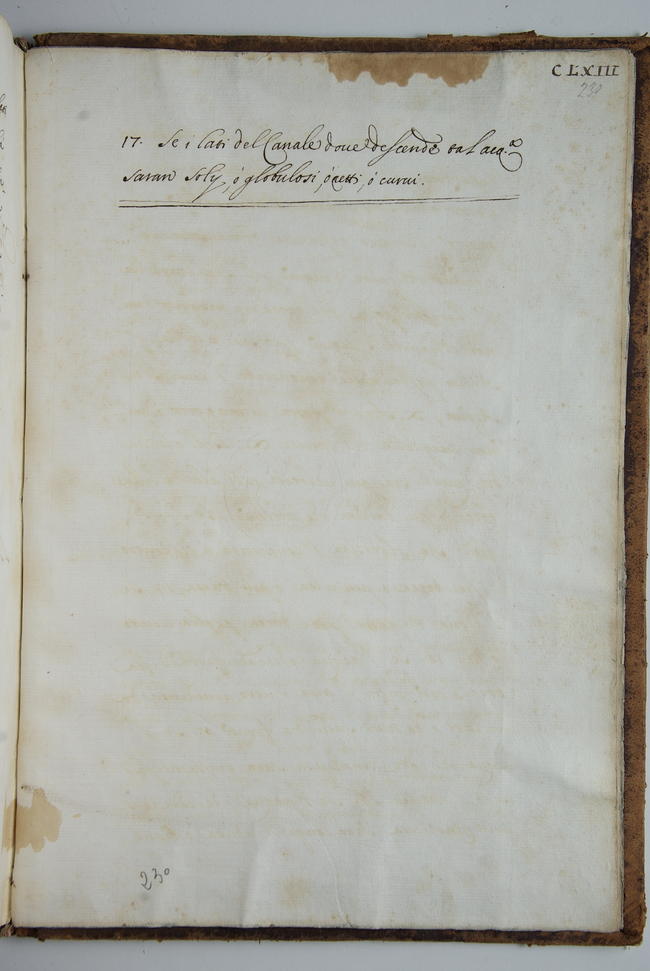 CLXIII
230
17. Se i lati del Canale doue descende tal acq.ª
saran soly, ó globulosi, ó retti, ó curui.
230